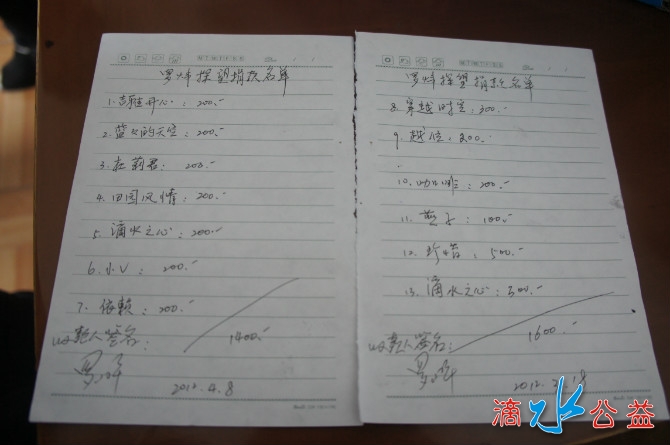 罗炜探望捐款名单
1. 吉雅开心：200.-
2. 蓝蓝的天空：200.-
3. 杜莉君：200.-
4. 田园风情：200.-
5. 滴水之心：200.-
6. 小V：200.-
7. 依赖：200.-
收款人签名：
1400.-
2012.4.8
罗炜探望捐款名单
8. 穿越时空：300.-
9. 越位：200.-
10. 咖啡：200.-
11. 燕子：100.-
12. 珍惜：500.-
13. 滴水之心：300.-
收款人签名：
1600.-
滴水公益